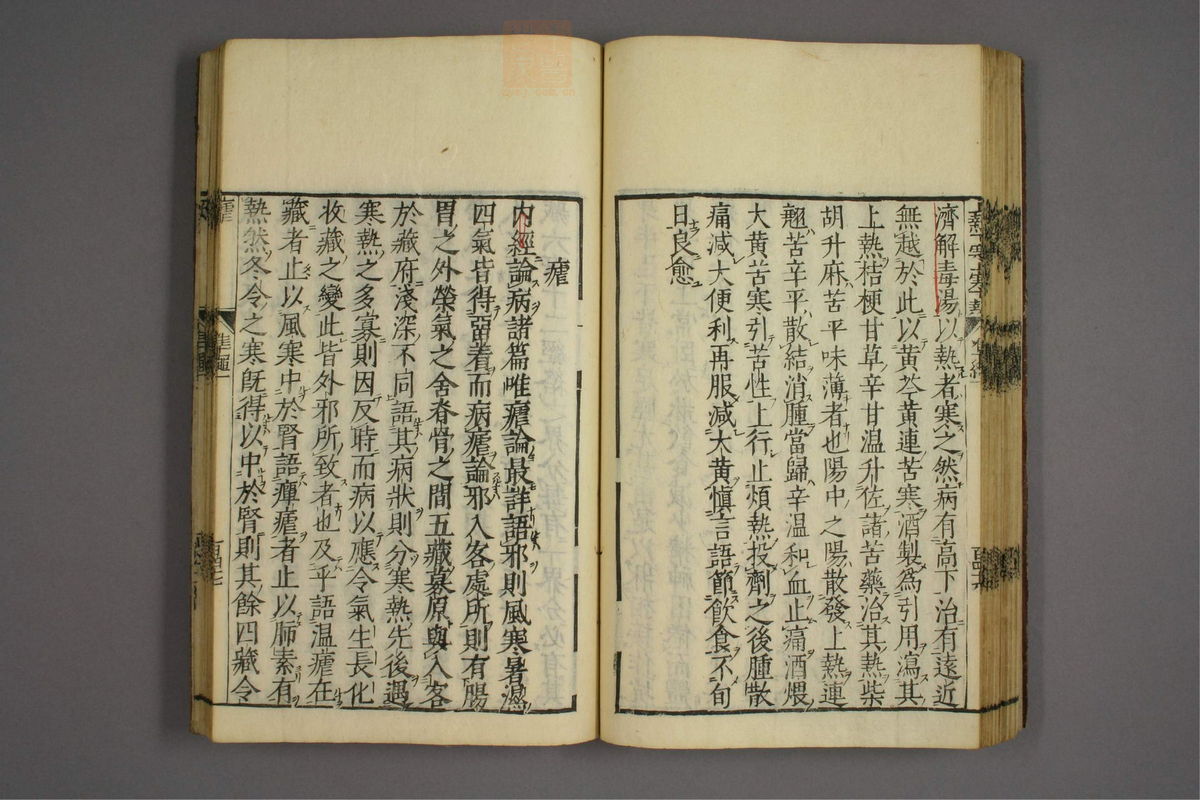 濟解毒湯以熱者寒之然病有高下治有遠近
無越於此以黃芩黃連苦寒酒製為引用瀉其
上熱桔梗甘草辛甘温升佐諸苦藥治其熱柴
胡升麻苦平味薄者也陽中之陽散發上熱連
翹苦辛平散結消腫當歸辛温和血止痛酒煨
大黃苦寒引苦性上行止煩熱投劑之後腫散
痛減大便利再服減大黃慎言語節飲食不旬
日良愈
瘧
内經論病諸篇唯瘧論最詳語邪則風寒暑濕
四氣皆得畱着而病瘧論邪入客處所則有腸
胃之外榮氣之舍脊骨之間五藏募原與入客
於藏府淺深不同語其病狀則分寒熱先後遇
寒熱之多寡則因反時而病以應令氣生長化
收藏之變此皆外邪所致者也及乎語温瘧在
藏者止以風寒中於腎語癉瘧者止以肺素有
熱然冬令之寒既得以中於腎則其餘四藏令
瘧